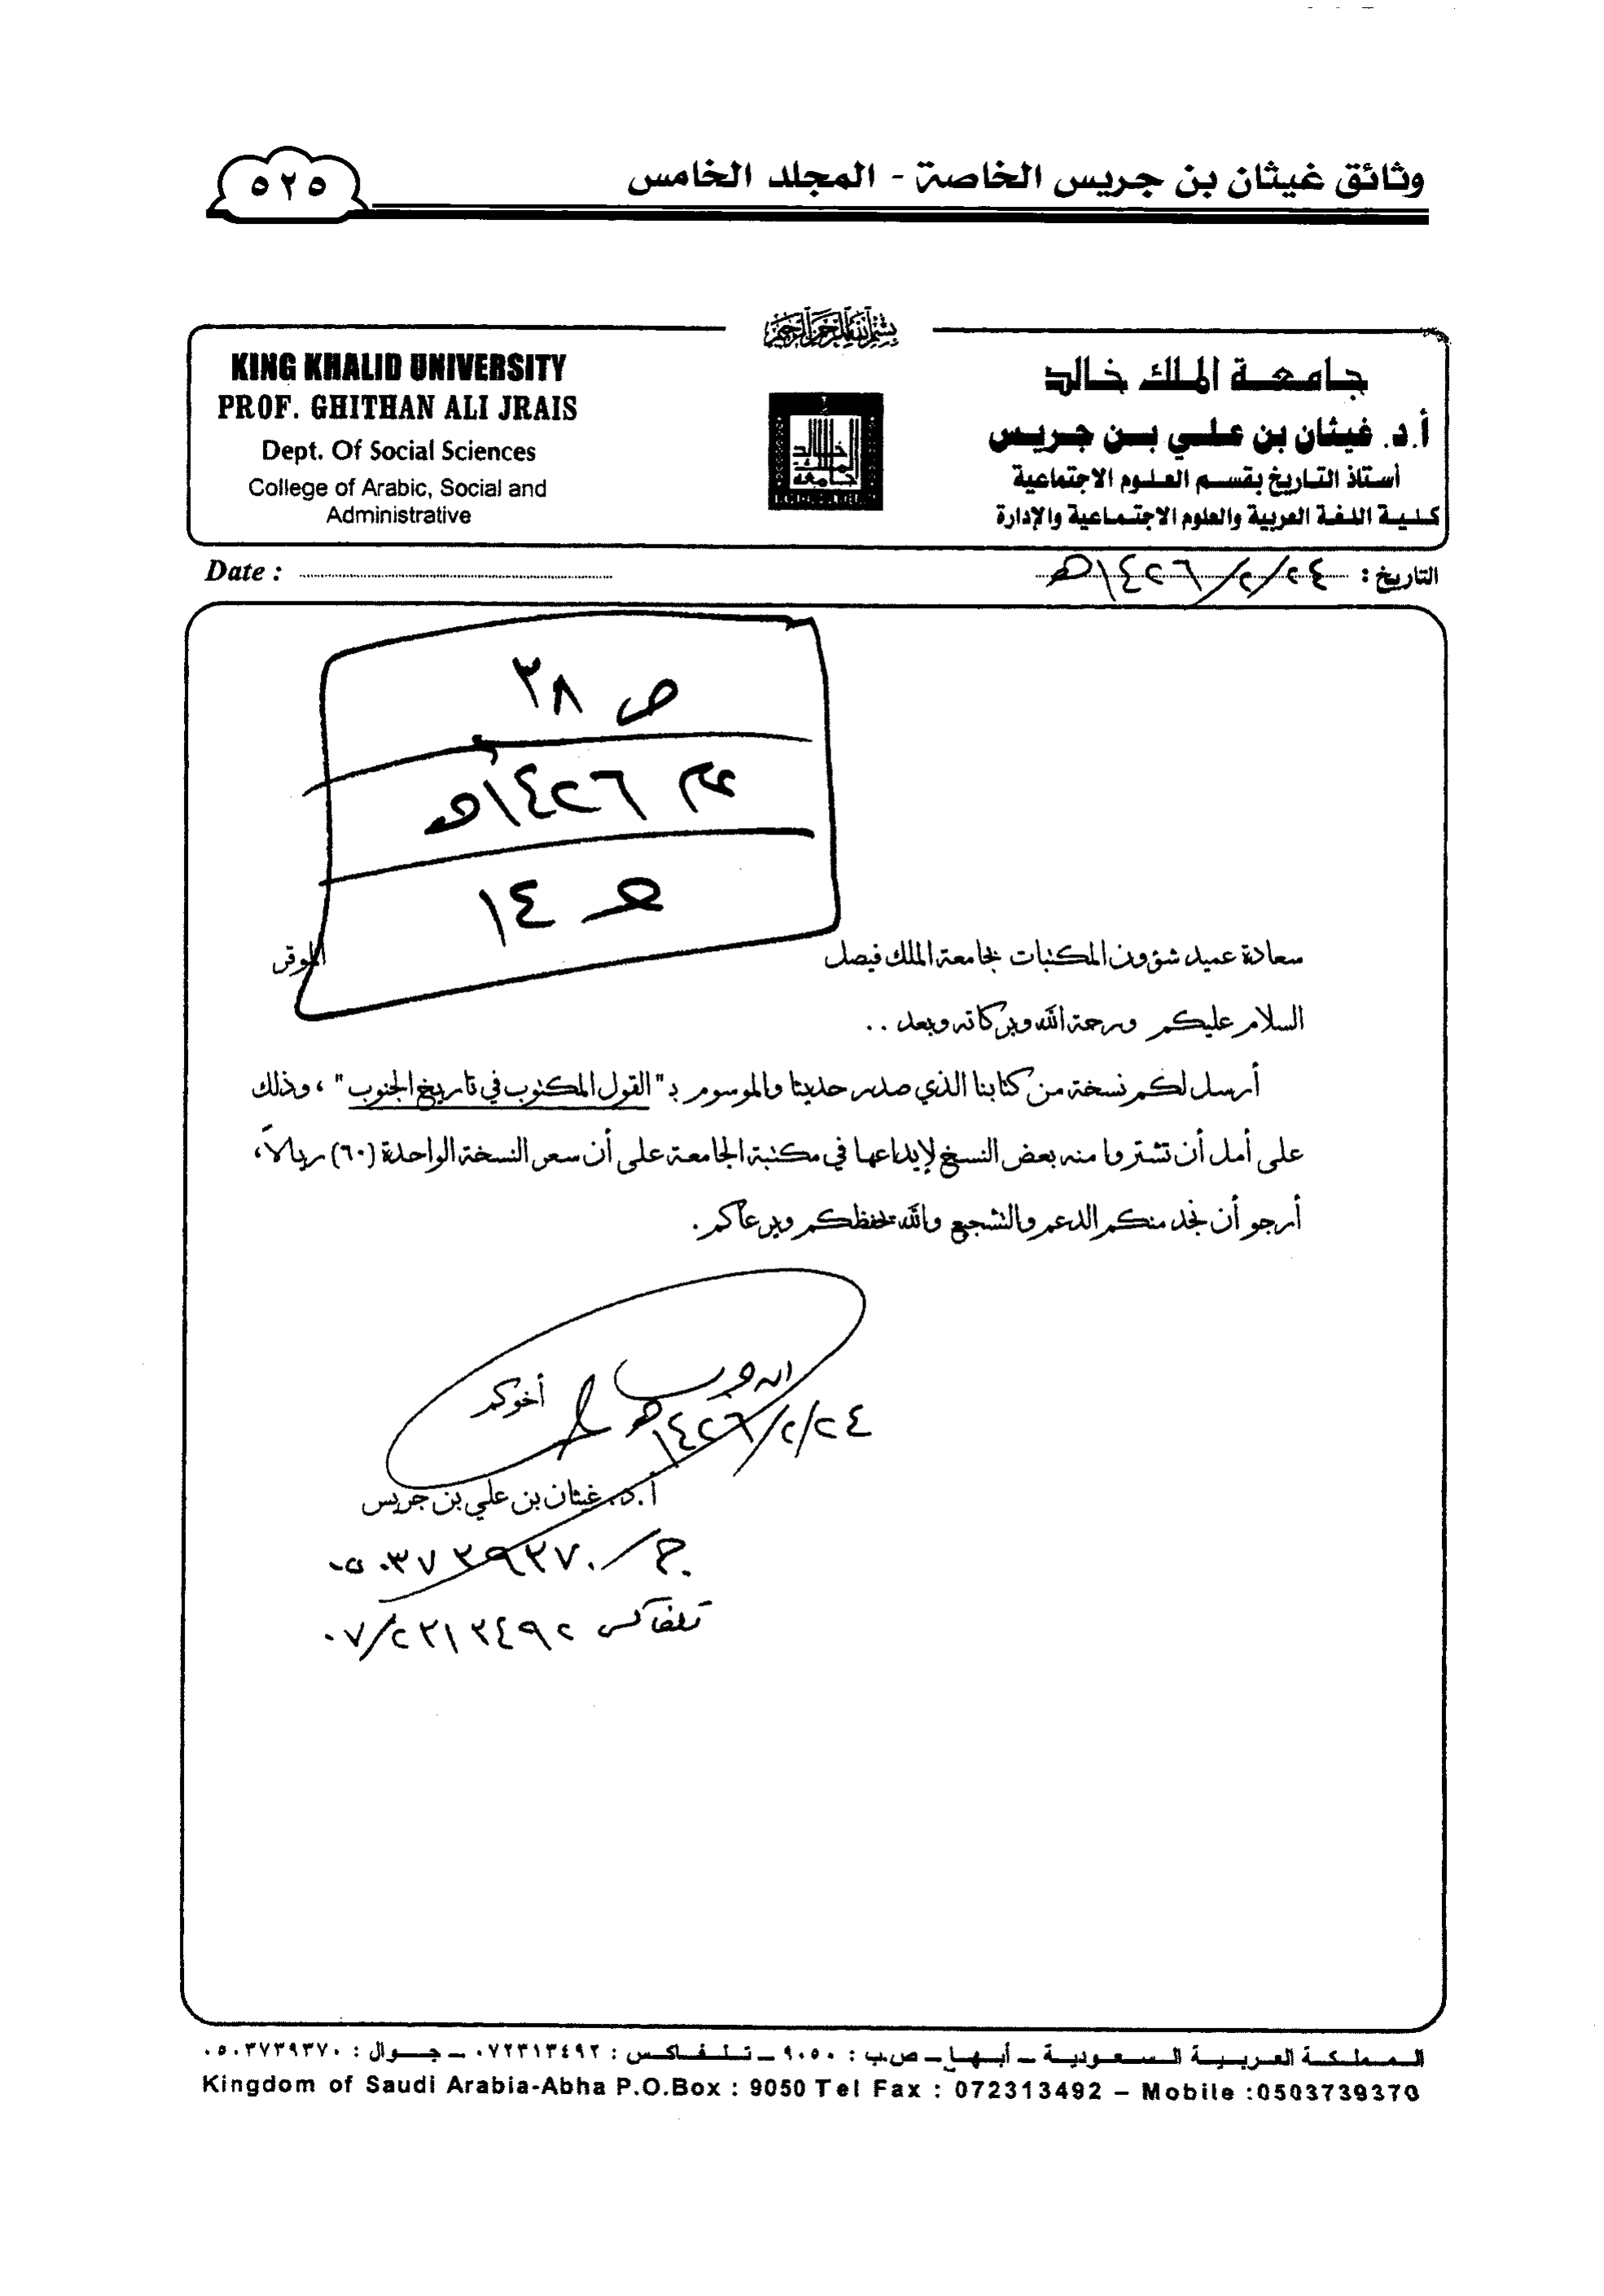 وثائق غيثان بن جريس الخاصة - المجلد الخامس
٥٢٥
بسم الله الرحمن الرحيم
جامعة الملك خالد
أ.د. غيثان بن علي بن جريس
أستاذ التاريخ بقسم العلوم الاجتماعية
كلية اللغة العربية والعلوم الاجتماعية والإدارة
KING KHALID UNIVERSITY
PROF. GHITHAN ALI JRAIS
Dept. Of Social Sciences
College of Arabic, Social and
Administrative
التاريخ : ٢٤/٢/١٤٢٦هـ
Date :
ص ٣٨
١٤٢٦هـ
١٤
سعادة عميد شؤون المكتبات بجامعة الملك فيصل الموقر
السلام عليكم ورحمة الله وبركاته وبعد ..
أرسل لكم نسخة من كتابنا الذي صدر حديثا والموسوم بـ "القول المكتوب في تاريخ الجنوب" ، وذلك
على أمل أن تشتروا منه بعض النسخ لإيداعها في مكتبة الجامعة على أن سعر النسخة الواحدة (٦٠) ريالاً،
أرجو أن نجد منكم الدعم والتشجيع والله يحفظكم ويرعاكم.
أخوكم
٢٤/٢/١٤٢٦هـ
أ.د. غيثان بن علي بن جريس
ج/ ٠٥٠٣٧٣٩٣٧٠
تلفاكس ٠٧/٢٣١٣٤٩٢
المملكة العربية السعودية – أبها – ص.ب : ٩٠٥٠ – تلفاكس : ٠٧٢٣١٣٤٩٢ – جوال : ٠٥٠٣٧٣٩٣٧٠
Kingdom of Saudi Arabia-Abha P.O.Box : 9050 Tel Fax : 072313492 – Mobile :0503739370